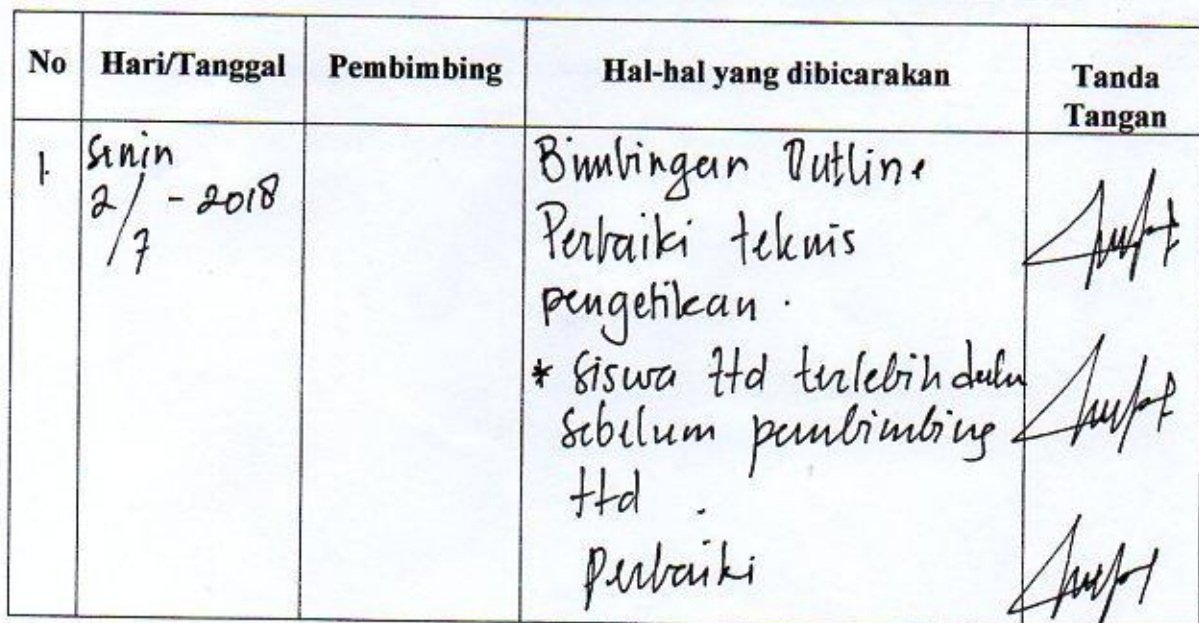 No Hari/Tanggal Pembimbing Hal-hal yang dibicarakan Tanda Tangan
1. Senin
2/7 - 2018
Bimbingan Outline
Perbaiki teknis
pengetikan.
* Siswa ttd terlebih dulu
sebelum pembimbing
ttd.
Perbaiki